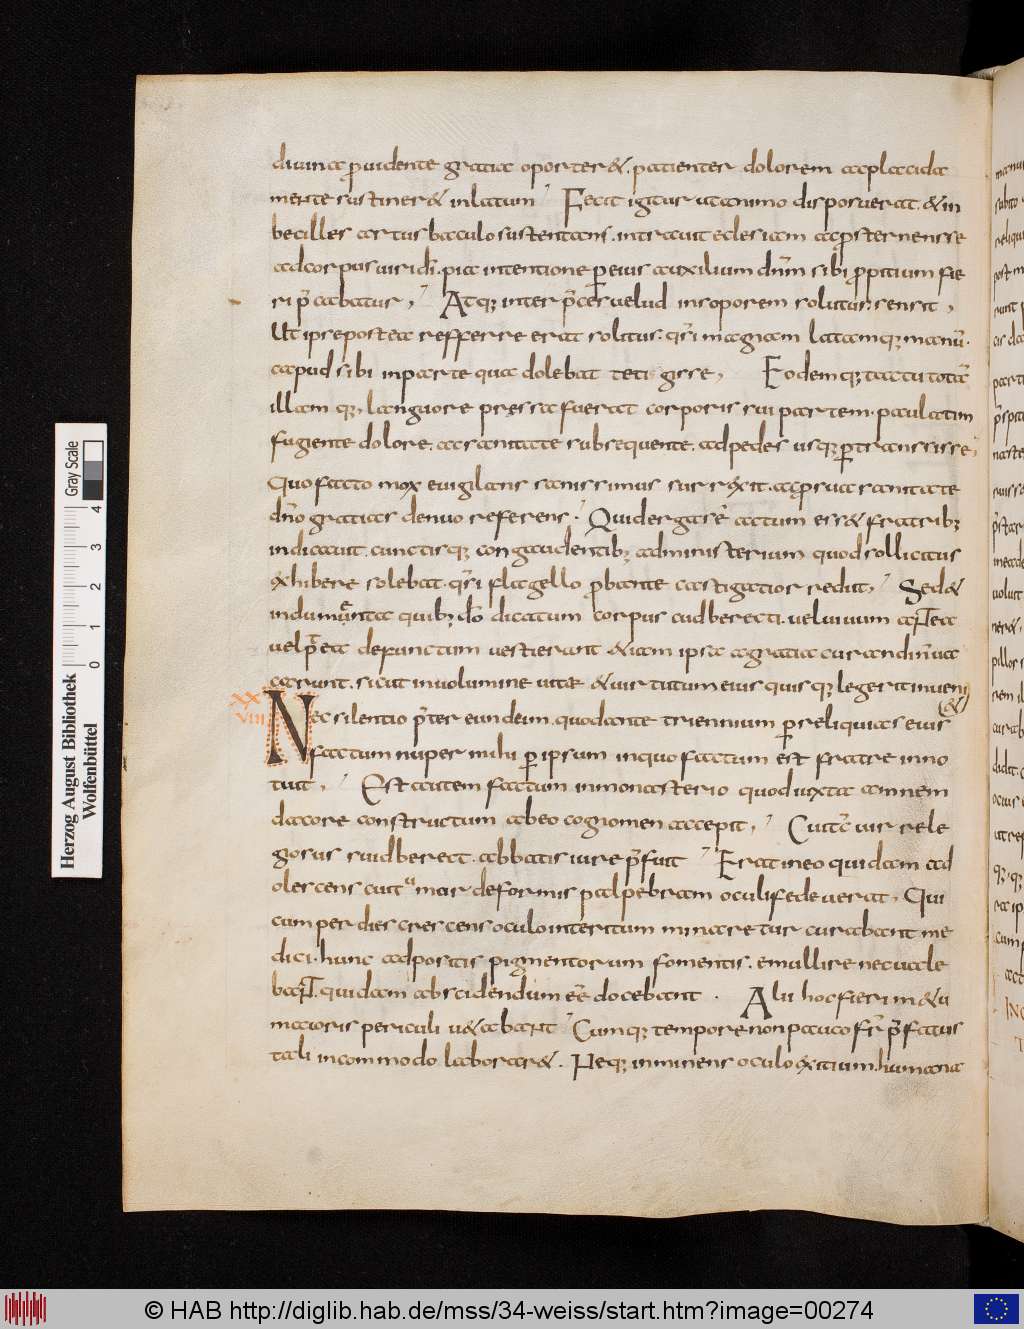 diuina ꝓuidente gratia oporter&. patienter dolorem ac placida
mente sustiner& inlatum. Fecit igitur ut animo disposuerat. & in
becilles artus baculo sustentans. intrauit eclesiam ac ꝓsternens se
ad corpus uiri dī. pia intentione ꝑ eius auxilium dn̄m sibi ꝓpitium fie
ri p̄cabatur, Atq; inter p̄ces uelud in soporem solutus sensit,
Ut ipse postea refferre erat solitus. q̄si magnam latamq; manū.
caput sibi in parte qua dolebat teti gisse, Eodemq; tactu totā
illam quę, languore pressa fuerat corporis sui partem. paulatim
fugiente dolore. ac sanitate subsequente. ad pedes usq; ꝑtranssisse,
Quo facto mox euigilans sanissimus surr&it. ac ꝓ sua sanitate
dn̄o gratias denuo referens. Quid erga sē actum ess& fratrib;
indicauit. cunctisq; congaudentib; ad ministerium quod sollicitus
exhibere solebat. q̄si flagello ꝓbante castigatior rediit, Sed &
indumenta quib; dō dicatum corpus cudberecti. uel uiuum antea
uel postea defunctum uestierant &iam ipsa a gratia curandi n̄ ua
carunt. sicut in uolumine uitæ & uirtutum eius quisq; legerit inueni&
XX
VIII
Nec silentio p̄ter eundum. quod ante triennium ꝑ reliquias eius
factum nuper mihi ꝑ ipsum in quo factum est fratre inno
tuit, Est autem factum in monasterio quod iuxta amnem
dacore constructum ab eo cognomen accepit, Cui tc̄ uir rele
gosus suidberect. abbatis iure p̄fuit Erat in eo quidam ad
olescens cui tumor deformis palpebram oculi fede uerat, Qui
cum per dies crescens oculo interitum minaretur curabant me
dici. hunc adpositis pigmentorum fomentis. emullire nec uale
bant. quidam abscidendum eē docebant. Alii hoc fieri m&u
maioris periculi u&abant. Cumq; tempore non pauco fr̄ p̄fatus
tali incommodo laborar&. Neq; inminens oculo exitium. humana
Herzog August Bibliothek
Wolfenbüttel
Gray Scale
0 1 2 3 4
© HAB http://diglib.hab.de/mss/34-weiss/start.htm?image=00274